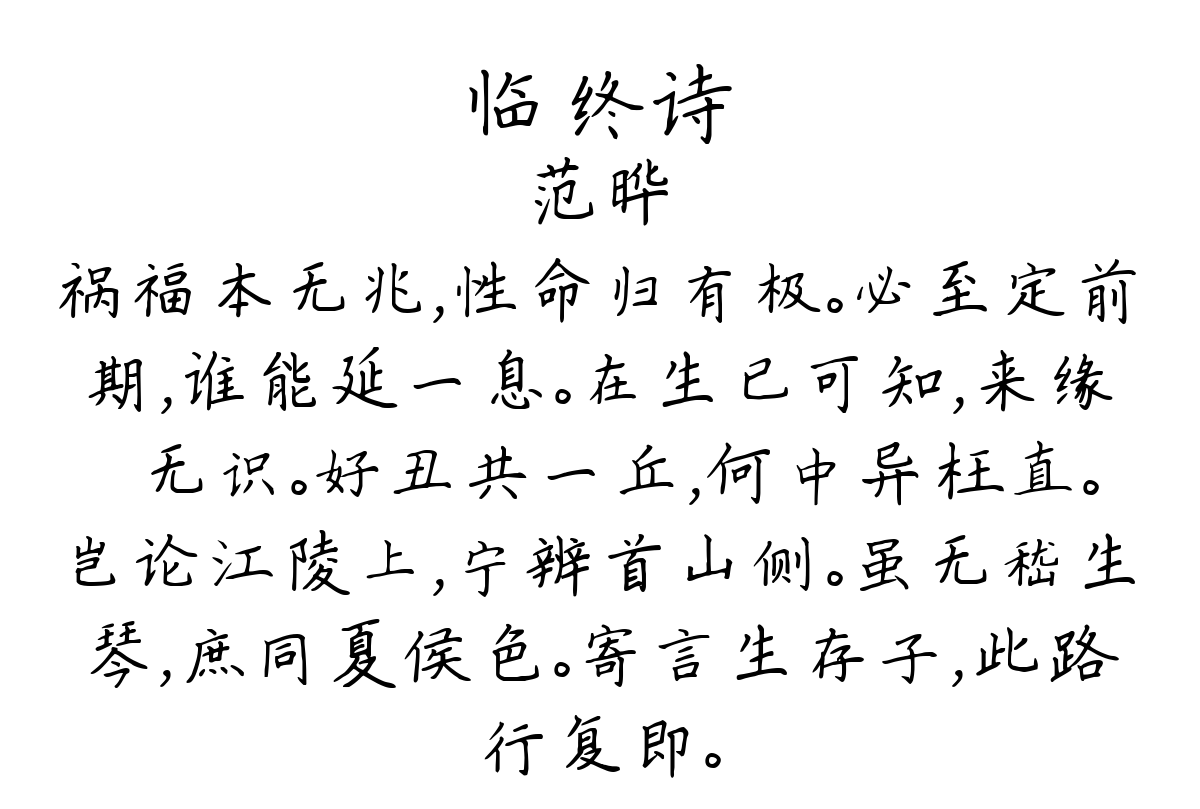 临终诗
范晔
祸福本无兆,性命归有极。必至定前
期,谁能延一息。在生已可知,来缘
无识。好丑共一丘,何中异枉直。
岂论江陵上,宁辨首山侧。虽无嵇生
琴,庶同夏侯色。寄言生存子,此路
行复即。